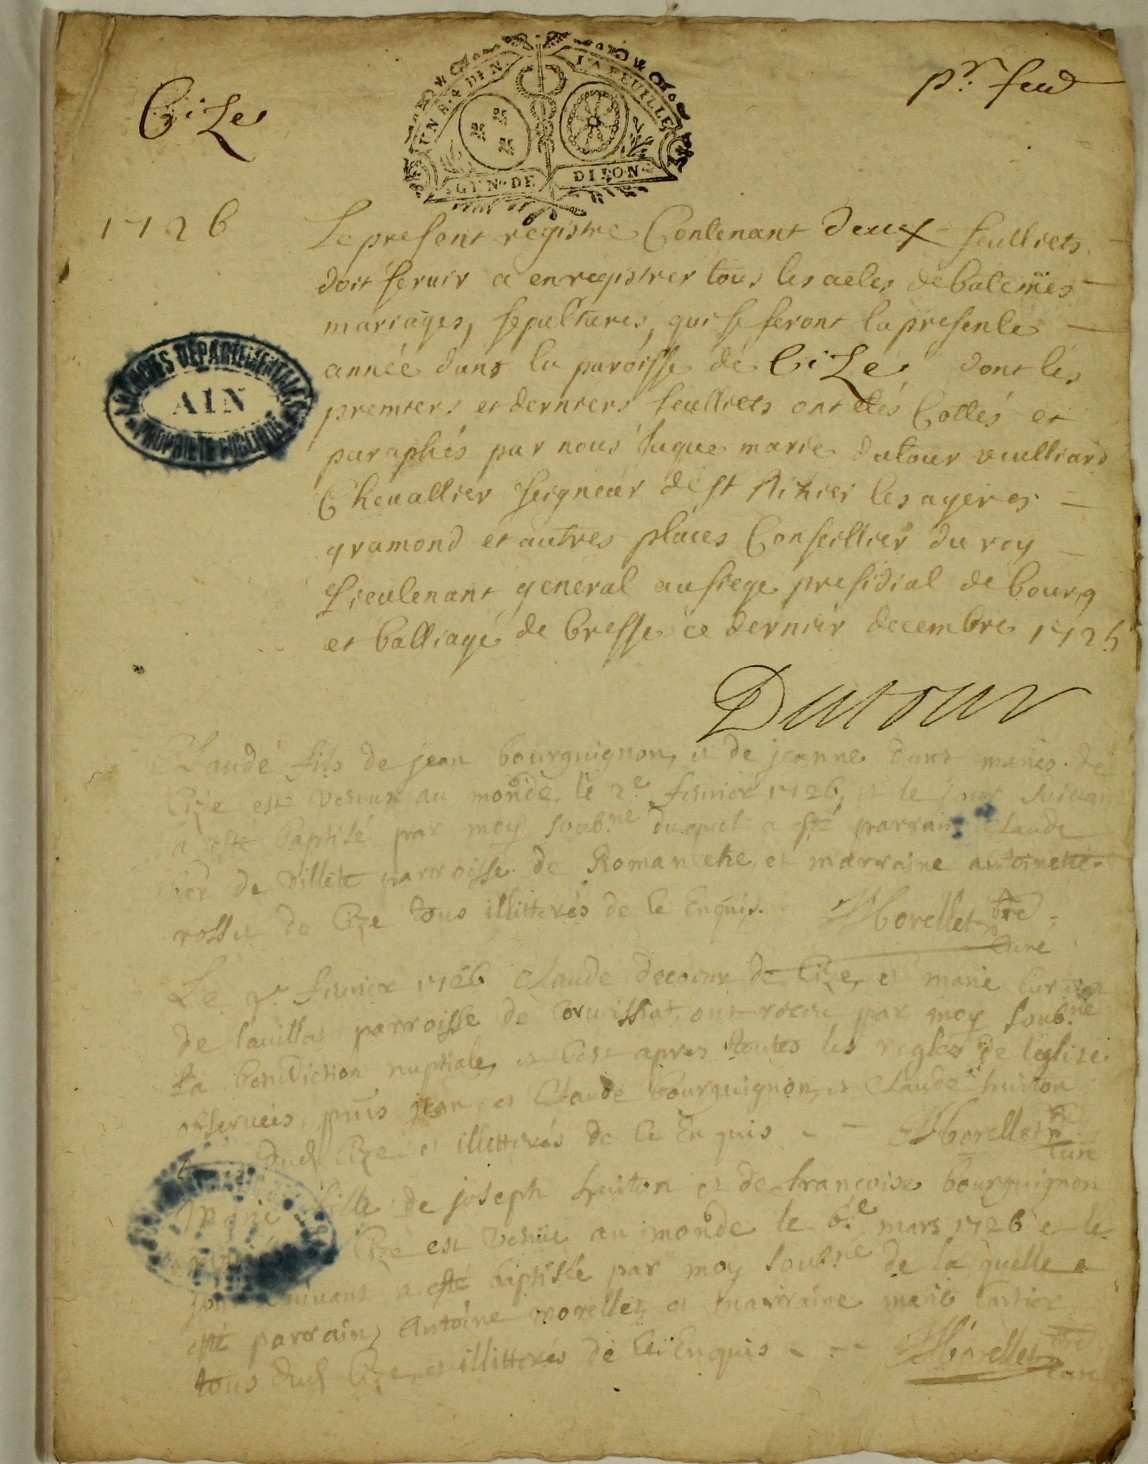 Cize
pr. feu
UN S. 4 DEN. LA FEUILLE
GEN. DE DIION
1726
Le present registre Contenant deux feulliets
doit servir a enregistrer tous les actes de batemes
mariages, sepultures, qui se feront la presente
année dans la paroisse de Cize dont les
premiers et derniers feulliets ont etés Cottés et
paraphés par nous Juque marie dutour vuilliard
Chevallier seigneur de st
gramond et autres places Conseillier du roy
Lieutenant general au siege presidial de bourg
et balliage de bresse ce dernier decembre 1725
Dutour
ARCHIVES DÉPARTEMENTALES
AIN
PROPRIÉTÉ PUBLIQUE
Claude fils de jean bourguignon et de jeanne mariés de
Cize est venu au monde le 2e fevrier 1726, et le jour suivant
a esté baptisé par moy soubne duquel a esté parrain Claude
de Villete parroisse de Romaneche et marraine antoinette
rosset de Cize tous illitterés de ce Enquis. Morellet pbre
Curé
Le fevrier 1726 Claude decoeur de Cize, et marie
de lauillat parroisse de Corueissiat, ont receu par moy soubne
la benediction nuptiale, et cest apres toutes les regles de leglise
observeés, pnts jean, et Claude bourguignon, et Claude huiton
dud Cize et illitterés de ce Enquis - - Morellet pbre
Curé
Marie fille de joseph huiton et de francoise bourguignon
Cize est venue au monde le 6e mars 1726 et le
jour suivant a esté baptisée par moy soubne de laquelle a
esté parrain, Antoine morellet, et marraine marie
tous dud Cize, et illitterés de ce Enquis - - - Morellet pbre
Curé